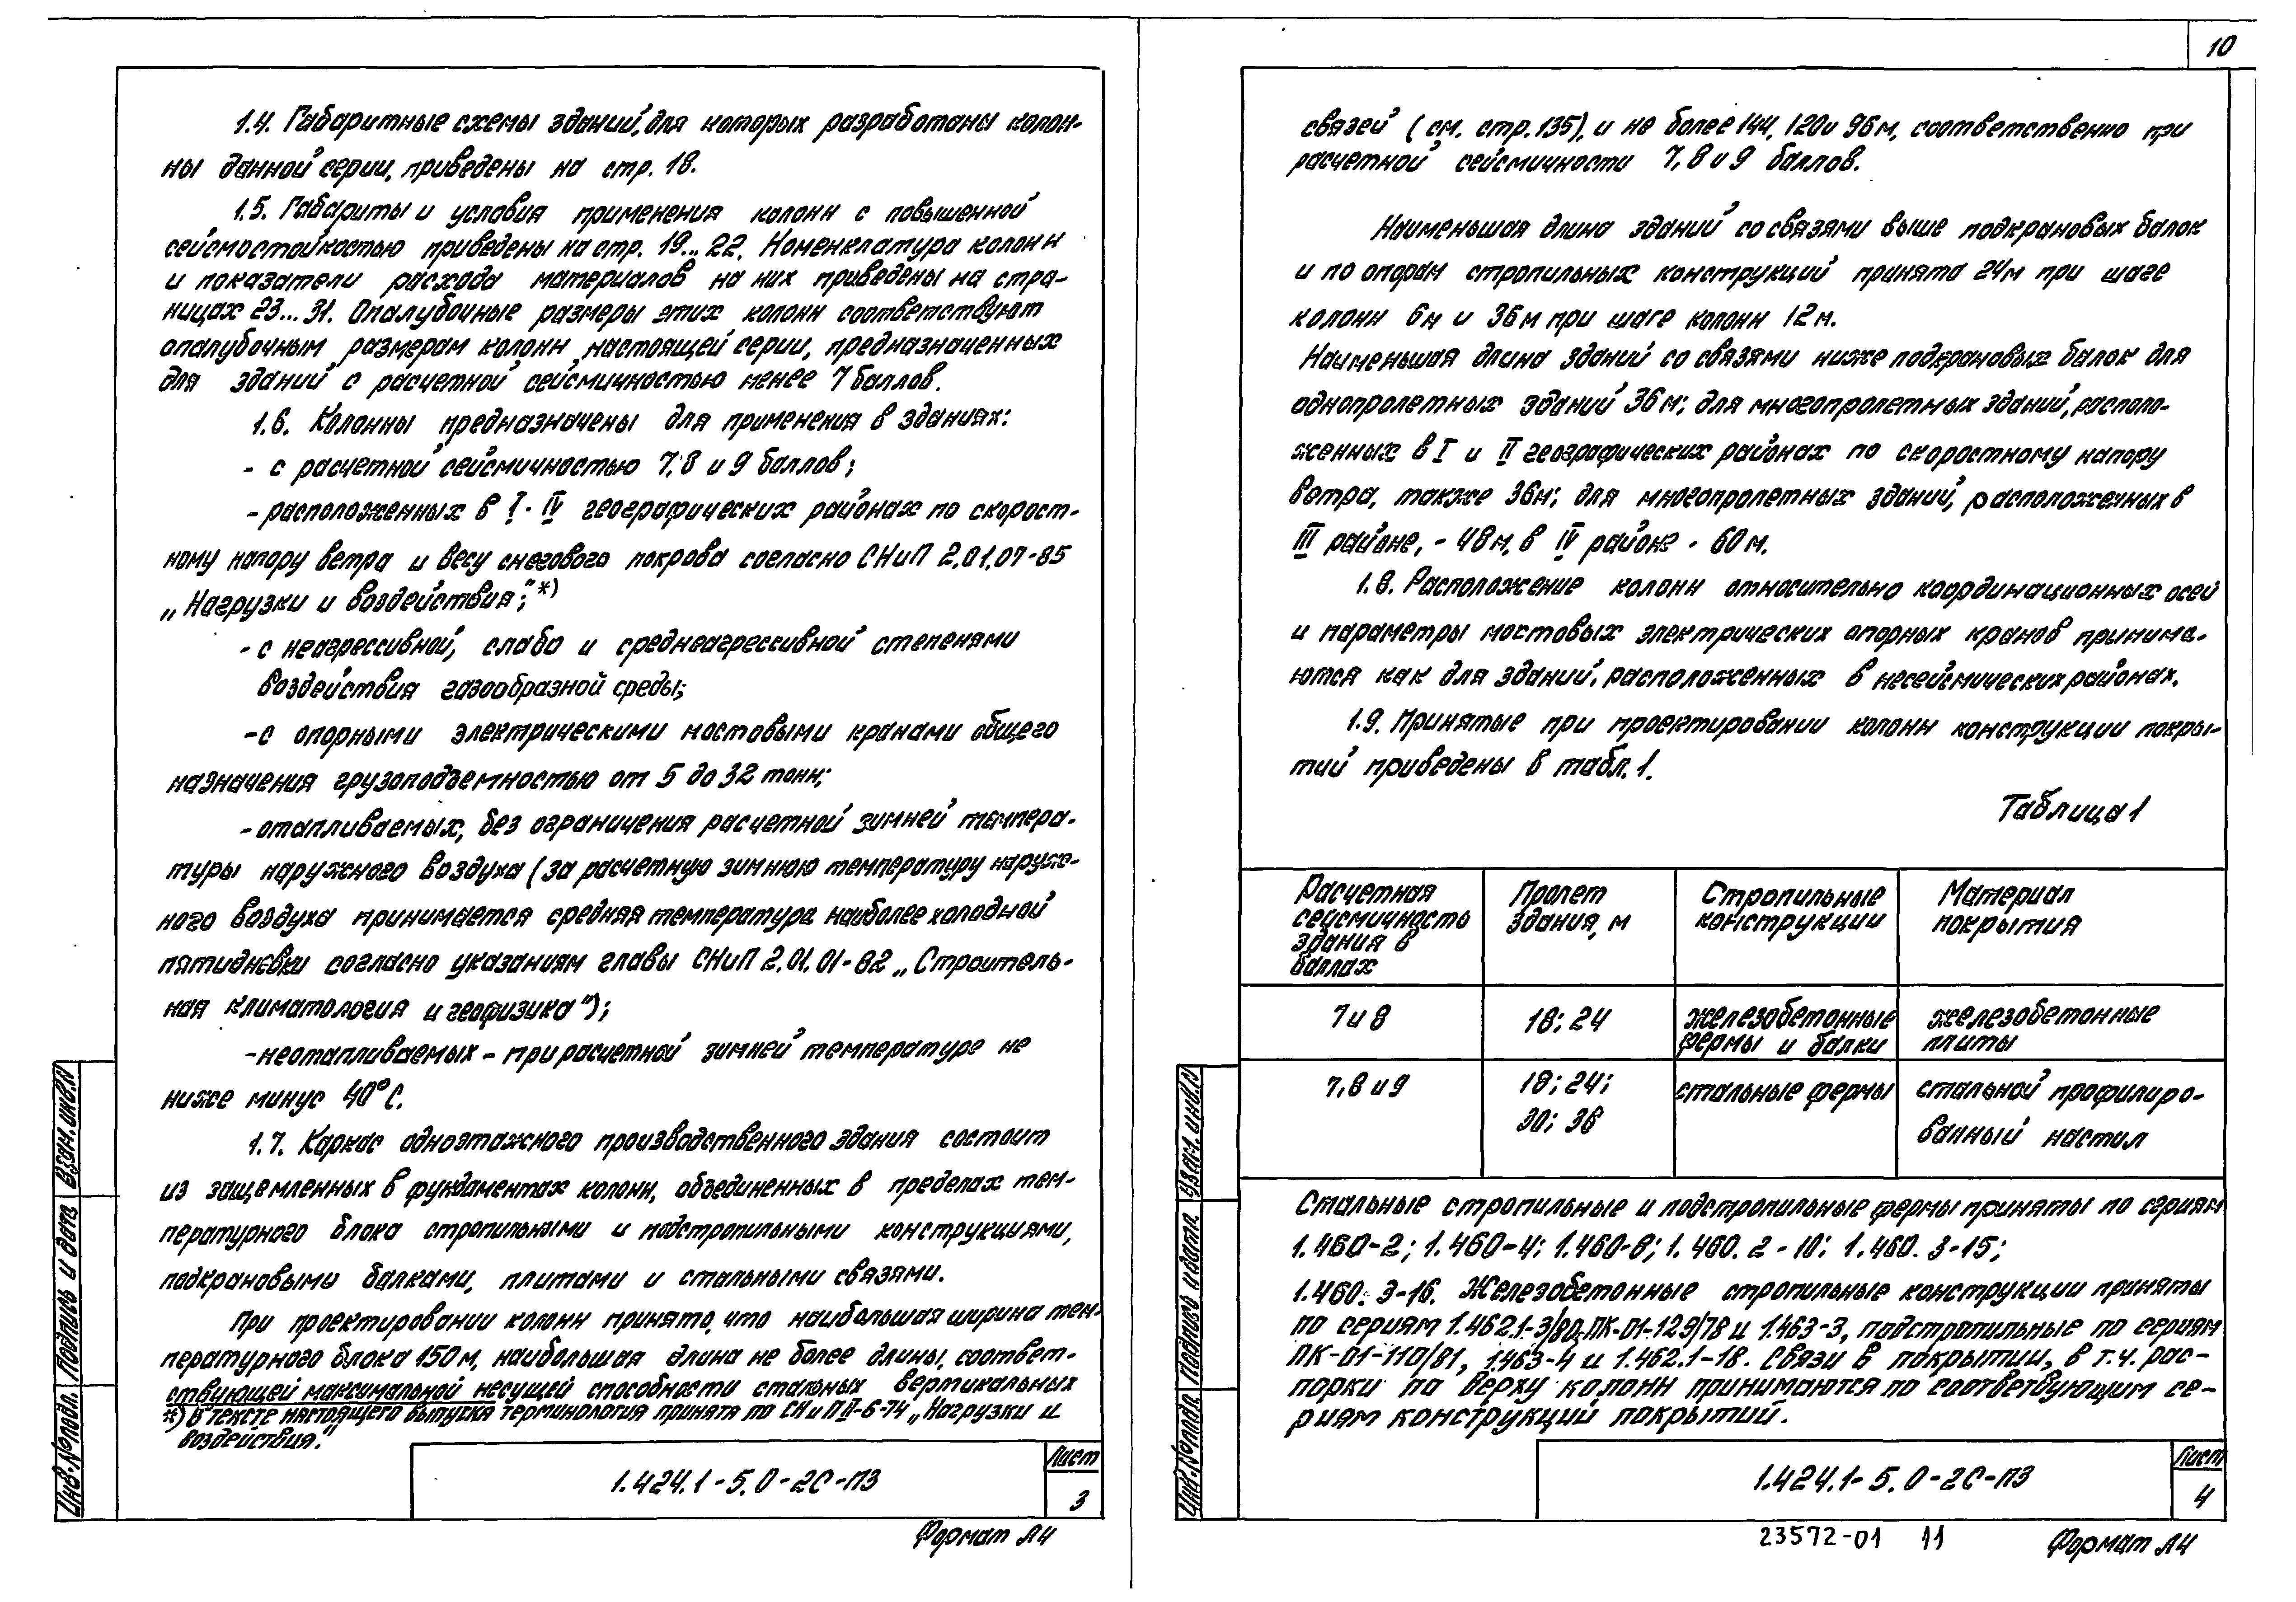 10
1.4. Габаритные схемы зданий, для которых разработаны колон-
ны данной серии, приведены на стр. 18.
1.5. Габариты и условия применения колонн с повышенной
сейсмостойкостью приведены на стр. 19... 22. Номенклатура колонн
и показатели расхода материалов на них приведены на стра-
ницах 23... 31. Опалубочные размеры этих колонн соответствуют
опалубочным размерам колонн настоящей серии, предназначенных
для зданий с расчетной сейсмичностью менее 7 баллов.
1.6. Колонны предназначены для применения в зданиях:
- с расчетной сейсмичностью 7,8 и 9 баллов;
- расположенных в I - IV географических районах по скорост-
ному напору ветра и весу снегового покрова согласно СНиП 2.01.07-85
„Нагрузки и воздействия";*)
- с неагрессивной, слабо и среднеагрессивной степенями
воздействия газообразной среды;
- с опорными электрическими мостовыми кранами общего
назначения грузоподъемностью от 5 до 32 тонн;
- отапливаемых, без ограничения расчетной зимней темпера-
туры наружного воздуха (за расчетную зимнюю температуру наруж-
ного воздуха принимается средняя температура наиболее холодной
пятидневки согласно указаниям главы СНиП 2.01.01-82 „Строитель-
ная климатология и геофизика");
- неотапливаемых - при расчетной зимней температуре не
ниже минус 40°С.
1.7. Каркас одноэтажного производственного здания состоит
из защемленных в фундаментах колонн, объединенных в пределах тем-
пературного блока стропильными и подстропильными конструкциями,
подкрановыми балками, плитами и стальными связями.
При проектировании колонн принято, что наибольшая ширина тем-
пературного блока 150 м, наибольшая длина не более длины, соответ-
ствующей максимальной несущей способности стальных вертикальных
*) В тексте настоящего выпуска терминология принята по СНиП II-6-74 „Нагрузки и
воздействия."
1.424.1-5.0-2С-ПЗ
Лист
3
Формат А4
Инв.№ подл. Подпись и дата Взам.инв.N
связей (см. стр. 135), и не более 144, 120 и 96 м, соответственно при
расчетной сейсмичности 7,8 и 9 баллов.
Наименьшая длина зданий со связями выше подкрановых балок
и по опорам стропильных конструкций принята 24м при шаге
колонн 6м и 36м при шаге колонн 12м.
Наименьшая длина зданий со связями ниже подкрановых балок для
однопролетных зданий 36м; для многопролетных зданий, располо-
женных в I и II географических районах по скоростному напору
ветра, также 36м; для многопролетных зданий, расположенных в
III районе, - 48м, в IV районе - 60м.
1.8. Расположение колонн относительно координационных осей
и параметры мостовых электрических опорных кранов принима-
ются как для зданий, расположенных в несейсмических районах.
1.9. Принятые при проектировании колонн конструкции покры-
тий приведены в табл. 1.
Таблица 1
Расчетная сейсмичность здания в баллах
Пролет здания, м
Стропильные конструкции
Материал покрытия
7 и 8
18; 24
железобетонные фермы и балки
железобетонные плиты
7,8 и 9
18; 24; 30; 36
стальные фермы
стальной профилиро-
ванный настил
Стальные стропильные и подстропильные фермы приняты по сериям
1.460-2; 1.460-4; 1.460-8; 1.460.2-10; 1.460.3-15;
1.460.3-16. Железобетонные стропильные конструкции приняты
по сериям 1.462.1-3/80, ПК-01-129/78 и 1.463-3, подстропильные по сериям
ПК-01-110/81, 1.463-4 и 1.462.1-18. Связи в покрытии, в т.ч. рас-
порки по верху колонн принимаются по соответвующим се-
риям конструкций покрытий.
1.424.1-5.0-2С-ПЗ
Лист
4
23572-01 11
Формат А4
Инв.№ подл. Подпись и дата Взам.инв.N